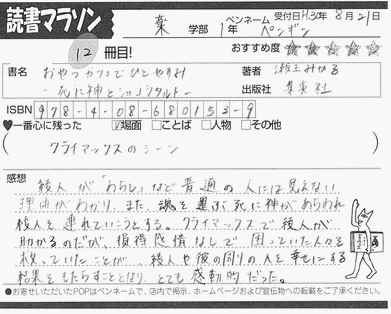 読書マラソン
薬 学部 1年 ペンネーム ペンギン 受付日H30年 8月21日
12 冊目! おすすめ度
書名 おやつカフェでひとやすみ 著者 瀬王みかる
-死に神とショコラタルト- 出版社 集英社
ISBN 978-4-08-680153-9
♥一番心に残った ☑場面 □ことば □人物 □その他
クライマックスのシーン
感想 綾人が「わらし」など普通の人には見えない
理由がわかり、また、魂を運ぶ死に神があらわれ
綾人を連れていこうとする。クライマックスで綾人が
助かるのだが、損得感情なしで困っていた人々を
救っていたことが 綾人や彼の周りの人を幸せにする
結果をもたらすこととなり、とても感動的だった。
●お寄せいただいたPOPはペンネームで、店内で掲示、ホームページおよび宣伝物への転載をご了承ください。